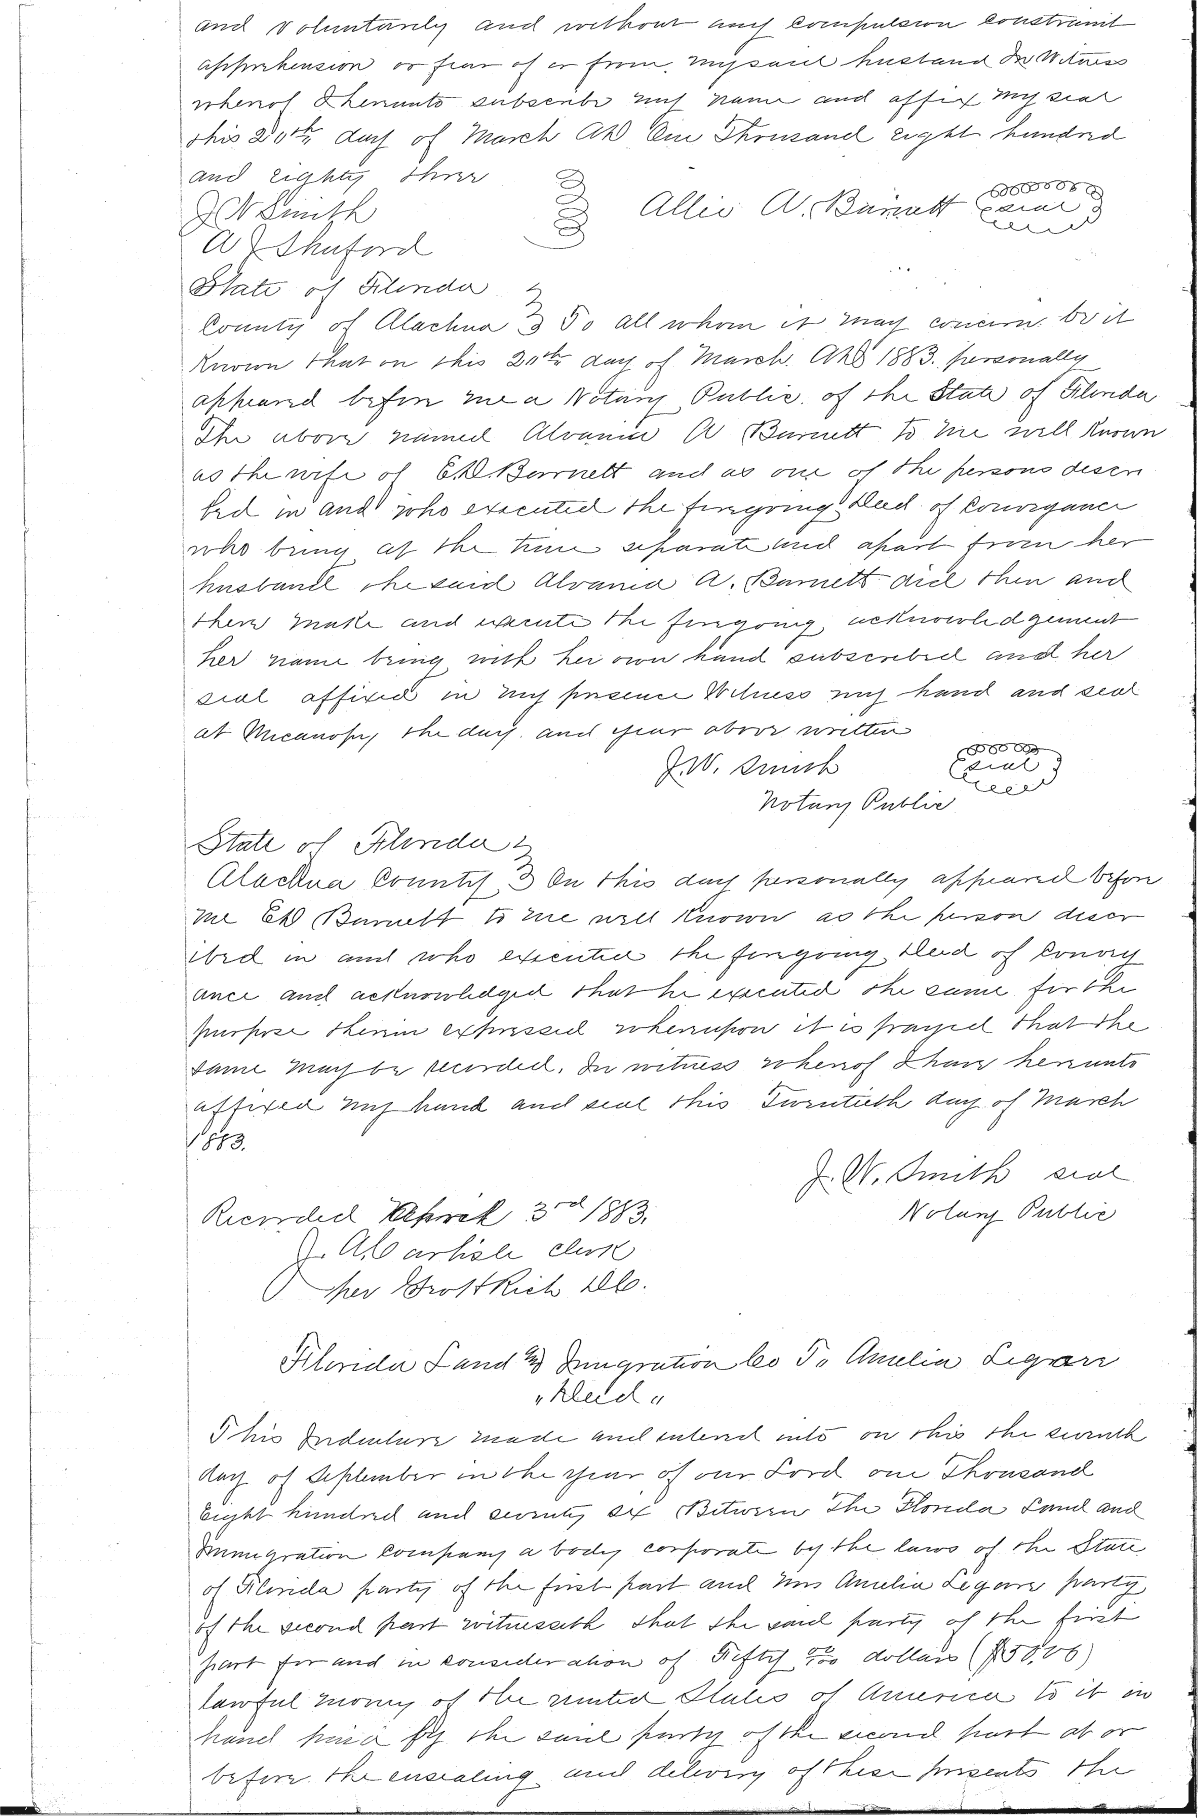 and voluntarily and without any compulsion constraint
apprehension or fear of or from my said husband In Witness
whereof I hereunto subscribe my name and affix my seal
this 20th day of March AD One Thousand eight hundred
and eighty three
J W Smith
Allie A. Barnett seal
A J Shuford
State of Florida
County of Alachua To all whom it may concern be it
Known that on this 20th day of March AD 1883. personally
appeared before me a Notary Public of the State of Florida
The above named Alvania A Barnett to me well Known
as the wife of E.D. Barnett and as one of the persons descri
bed in and who executed the foregoing Deed of Conveyance
who being at the time separate and apart from her
husband she said Alvania A. Barnett did then and
there make and execute the foregoing acknowledgement
her name being with her own hand subscribed and her
seal affixed in my presence Witness my hand and seal
at Micanopy the day and year above written
J. W. Smith seal
Notary Public
State of Florida
Alachua County On this day personally appeared before
me ED Barnett to me well Known as the person descr
ibed in and who executed the foregoing Deed of Convey
ance and acknowledged that he executed the same for the
purpose therein expressed whereupon it is prayed that the
same may be recorded. In witness whereof I have hereunto
affixed my hand and seal this Twentieth day of March
1883.
J. W. Smith seal
Notary Public
Recorded April 3rd 1883.
J. A. Carlisle clerk
per DC.
Florida Land & Immigration Co To Amelia Legare
"Deed"
This Indenture made and entered into on this the seventh
day of September in the year of our Lord one Thousand
Eight hundred and seventy six Between The Florida Land and
Immigration Company a body corporate by the laws of the State
of Florida party of the first part and Mrs Amelia Legare party
of the second part witnesseth that the said party of the first
part for and in consideration of Fifty 00/100 dollars ($50.00)
lawful money of the united States of America to it in
hand paid by the said party of the second part at or
before the ensealing and delivery of these presents the